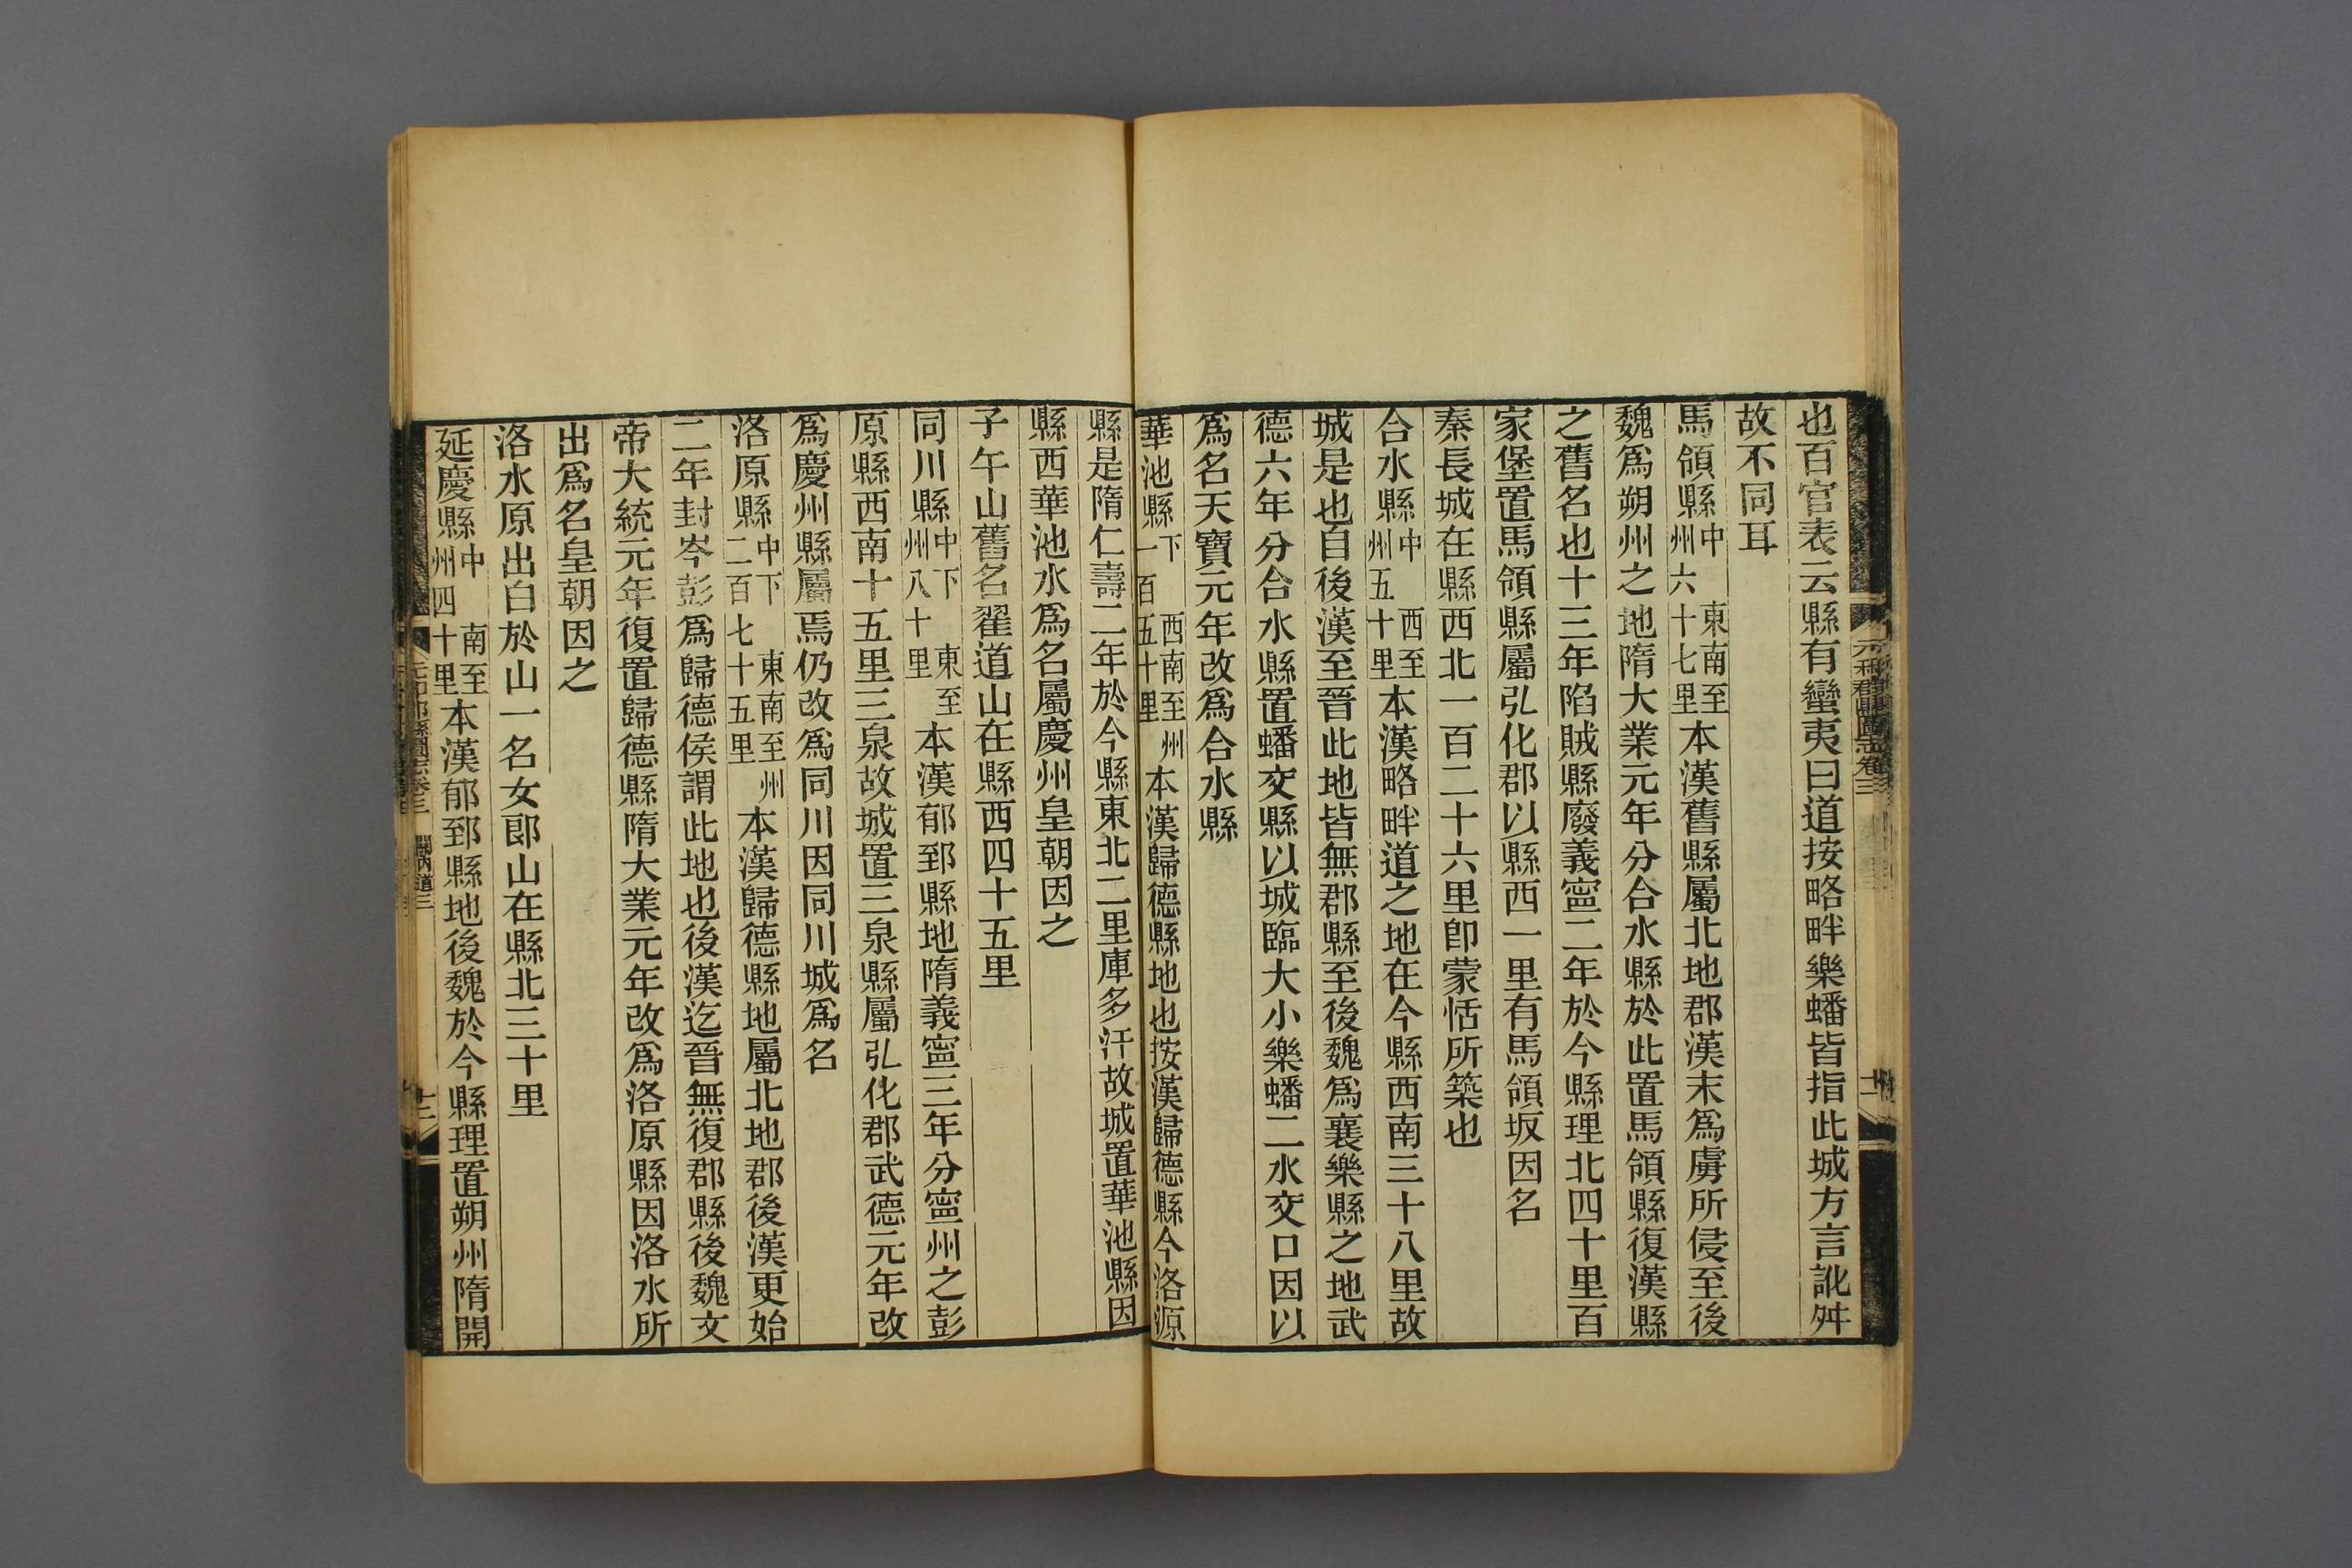 也百官表云縣有蠻夷曰道按略畔樂蟠皆指此城方言訛舛
故不同耳
馬領縣中東南至州六十七里本漢舊縣屬北地郡漢末爲虜所侵至後
魏爲朔州之地隋大業元年分合水縣於此置馬領縣復漢縣
之舊名也十三年陷賊縣廢義寧二年於今縣理北四十里百
家堡置馬領縣屬弘化郡以縣西一里有馬領坂因名
秦長城在縣西北一百二十六里卽蒙恬所築也
合水縣中西至州五十里本漢略畔道之地在今縣西南三十八里故
城是也自後漢至晉此地皆無郡縣至後魏爲襄樂縣之地武
德六年分合水縣置蟠交縣以城臨大小樂蟠二水交口因以
爲名天寶元年改爲合水縣
華池縣下西南至州一百五十里本漢歸德縣地也按漢歸德縣今洛源
縣是隋仁壽二年於今縣東北二里庫多汗故城置華池縣因
縣西華池水爲名屬慶州皇朝因之
子午山舊名翟道山在縣西四十五里
同川縣中下東至州八十里本漢郁郅縣地隋義寧三年分寧州之彭
原縣西南十五里三泉故城置三泉縣屬弘化郡武德元年改
爲慶州縣屬焉仍改爲同川因同川城爲名
洛原縣中下東南至州二百七十五里本漢歸德縣地屬北地郡後漢更始
二年封岑彭爲歸德侯謂此地也後漢迄晉無復郡縣後魏文
帝大統元年復置歸德縣隋大業元年改爲洛原縣因洛水所
出爲名皇朝因之
洛水原出白於山一名女郞山在縣北三十里
延慶縣中南至州四十里本漢郁郅縣地後魏於今縣理置朔州隋開
元和郡縣圖志卷三
關內道三